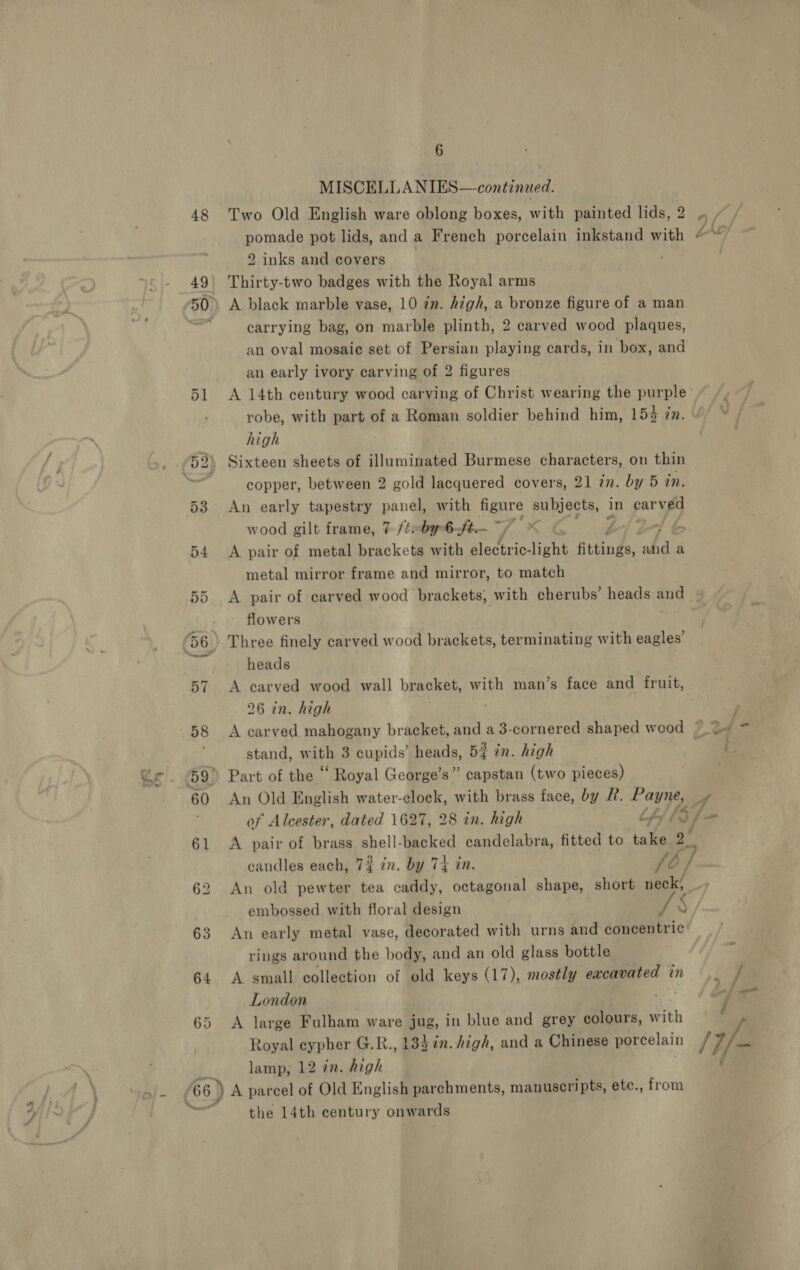 6
MISCELLANIES—continued.
48 Two Old English ware oblong boxes, with painted lids, 2
pomade pot lids, and a French porcelain inkstand with
2 inks and covers
49 Thirty-two badges with the Royal arms
50 A black marble vase, 10 in. high, a bronze figure of a man
carrying bag, on marble plinth, 2 carved wood plaques,
an oval mosaic set of Persian playing cards, in box, and
an early ivory carving of 2 figures
51 A 14th century wood carving of Christ wearing the purple
robe, with part of a Roman soldier behind him, 15½ in.
high
52 Sixteen sheets of illuminated Burmese characters, on thin
copper, between 2 gold lacquered covers, 21 in. by 5 in.
53 An early tapestry panel, with figure subjects, in carved
wood gilt frame, 7 ft. by 6 ft.
54 A pair of metal brackets with electric-light fittings, and a
metal mirror frame and mirror, to match
55 A pair of carved wood brackets, with cherubs' heads and
flowers
56 Three finely carved wood brackets, terminating with eagles'
heads
57 A carved wood wall bracket, with man's face and fruit,
26 in. high
58 A carved mahogany bracket, and a 3-cornered shaped wood
stand, with 3 cupids' heads, 5¾ in. high
59 Part of the "Royal George's" capstan (two pieces)
60 An Old English water-clock, with brass face, by R. Payne,
of Alcester, dated 1627, 28 in. high
61 A pair of brass shell-backed candelabra, fitted to take 2
candles each, 7¾ in. by 7¼ in.
62 An old pewter tea caddy, octagonal shape, short neck,
embossed with floral design
63 An early metal vase, decorated with urns and concentric
rings around the body, and an old glass bottle
64 A small collection of old keys (17), mostly excavated in
London
65 A large Fulham ware jug, in blue and grey colours, with
Royal cypher G.R., 13½ in. high, and a Chinese porcelain
lamp, 12 in. high
66 A parcel of Old English parchments, manuscripts, etc., from
the 14th century onwards